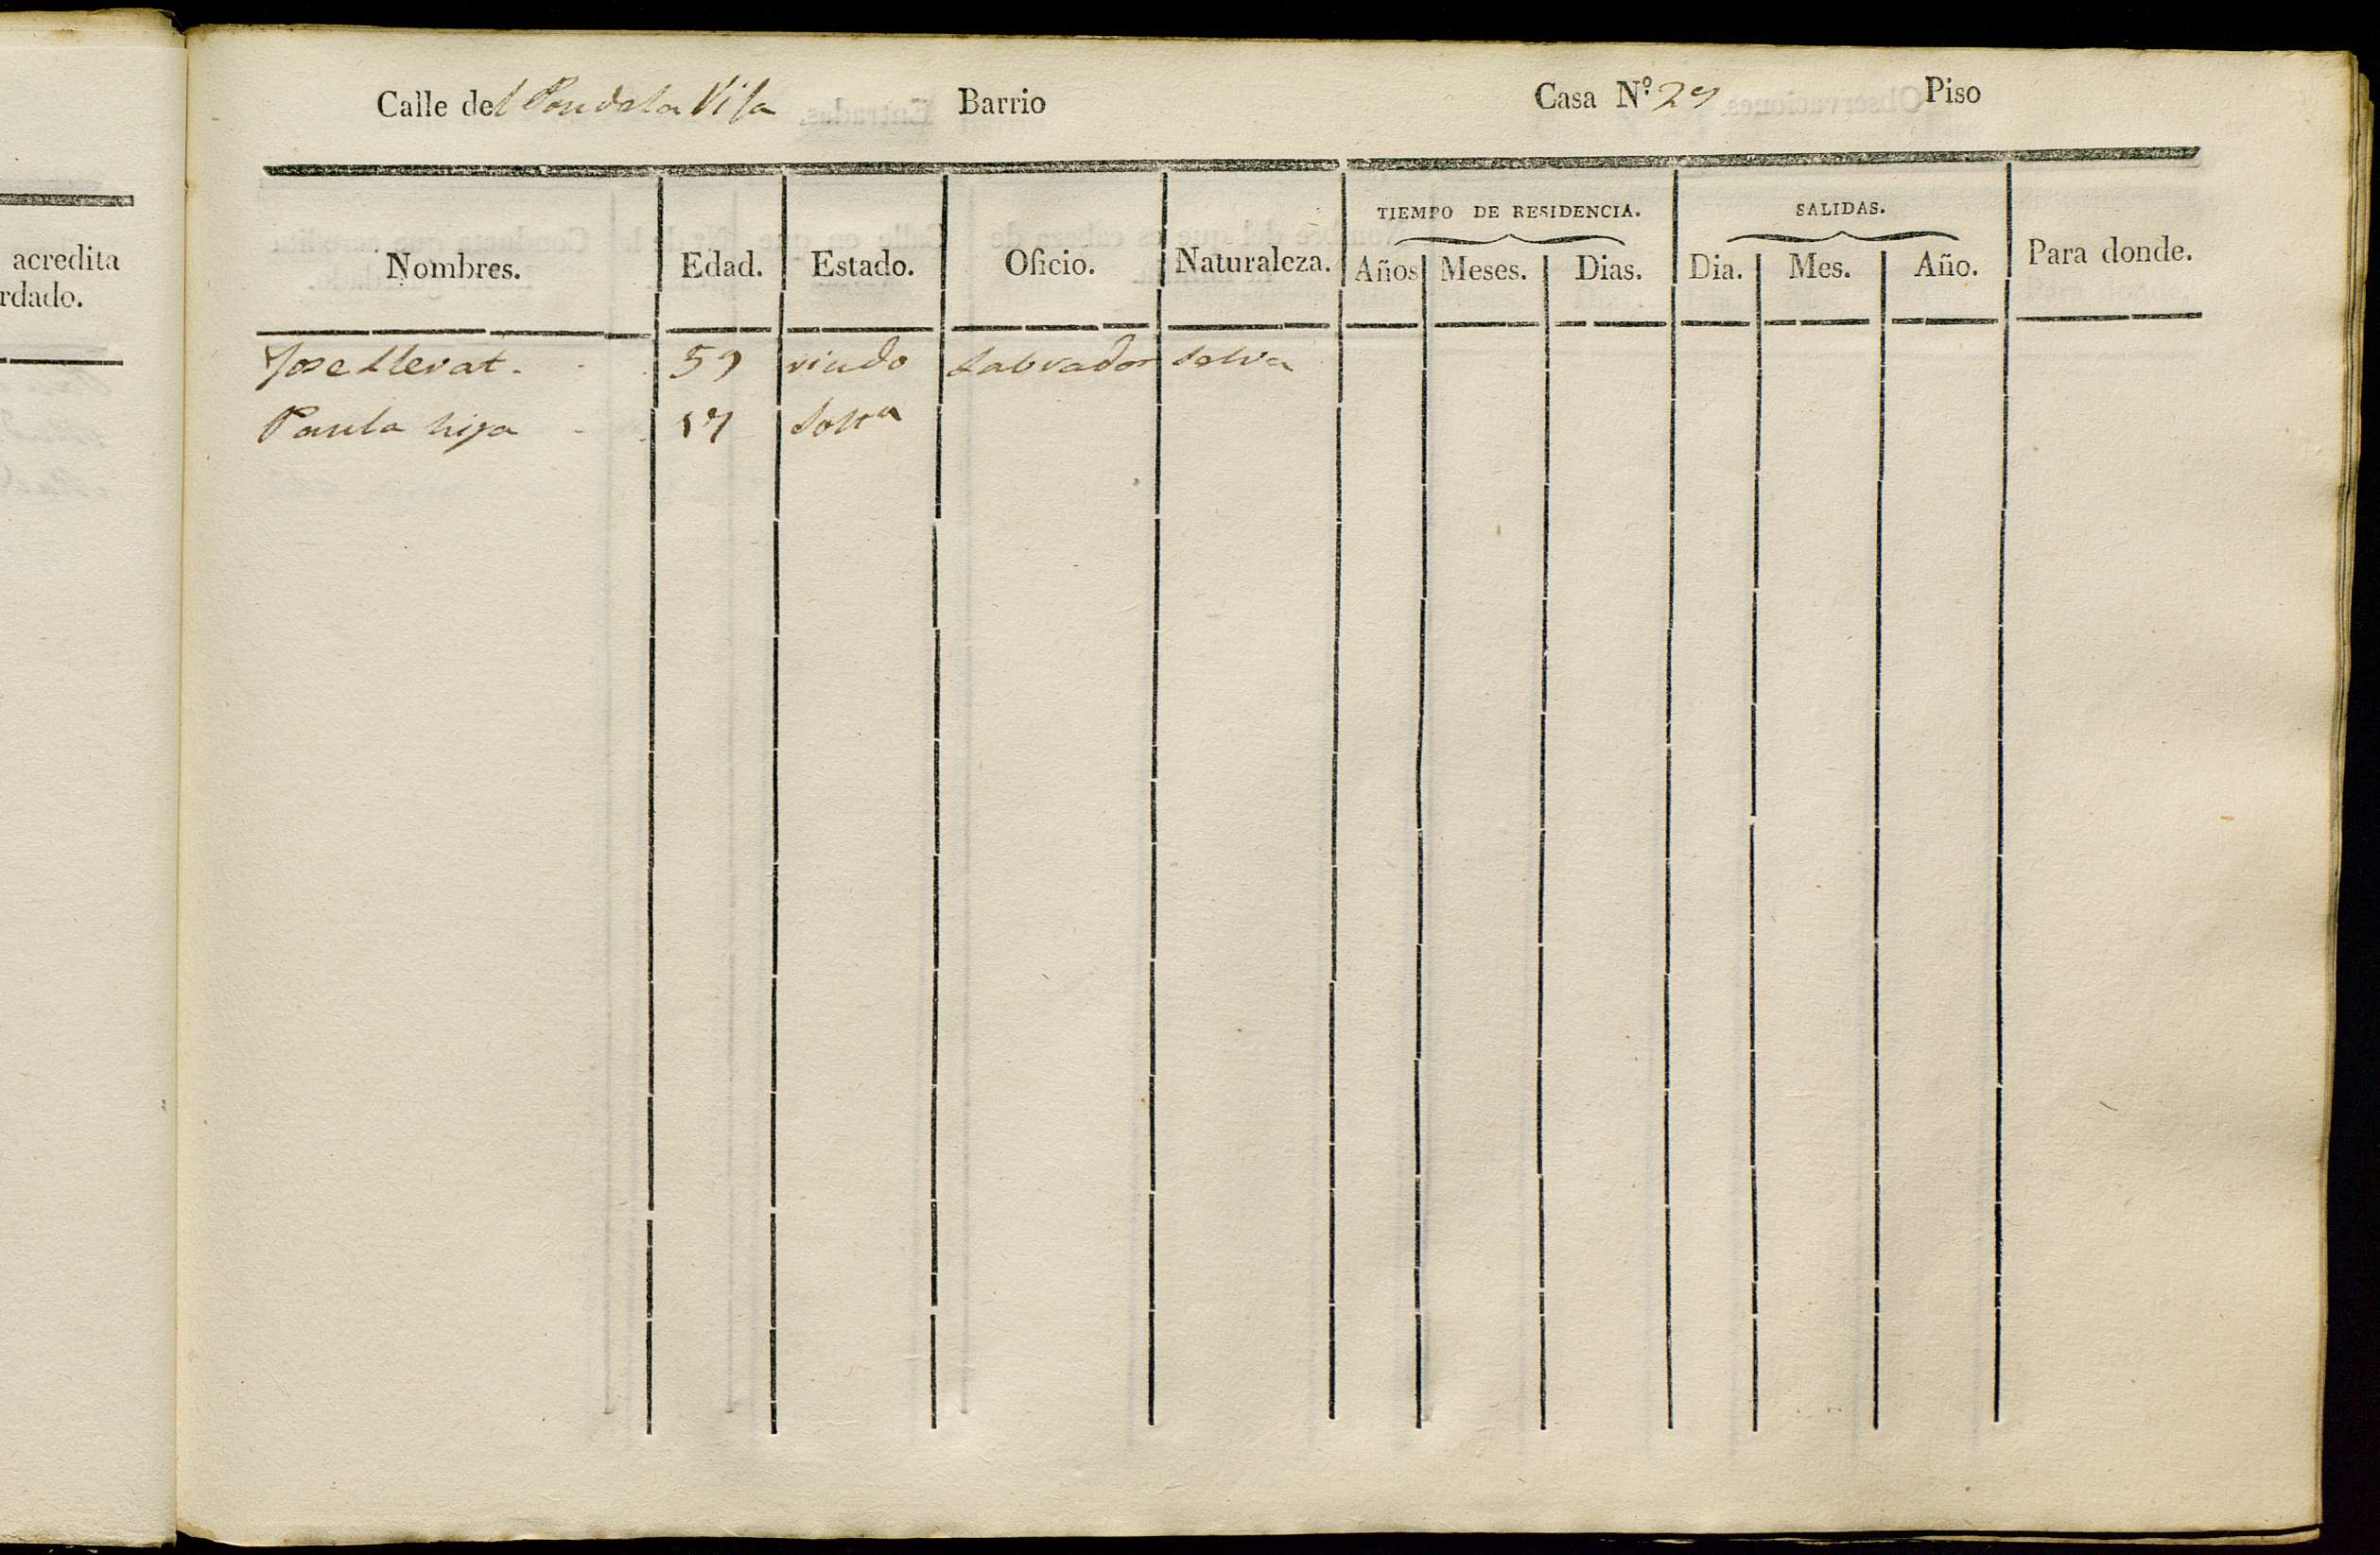 acredita
rdado.
Calle del Pou de la Vila Barrio Casa N.º 29 Piso
TIEMPO DE RESIDENCIA. SALIDAS.
Nombres. Edad. Estado. Oficio. Naturaleza. Años Meses. Dias. Dia. Mes. Año. Para donde.
Jose Llevat. 59 viudo Labrador Selva
Paula hija 17 Solt.ª